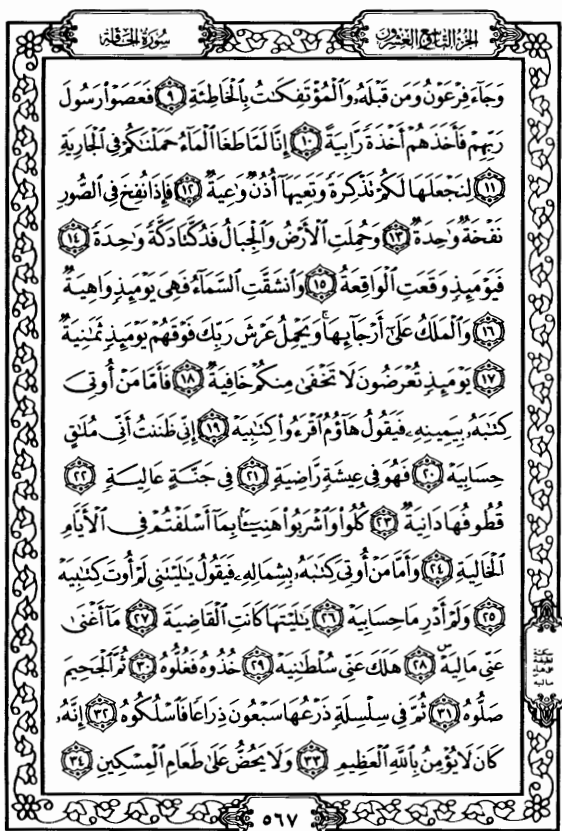 الجزء التاسع والعشرون
سورة الحاقة
وَجَآءَ فِرْعَوْنُ وَمَن قَبْلَهُۥ وَٱلْمُؤْتَفِكَٰتُ بِٱلْخَاطِئَةِ ٩ فَعَصَوْا۟ رَسُولَ
رَبِّهِمْ فَأَخَذَهُمْ أَخْذَةً رَّابِيَةً ١٠ إِنَّا لَمَّا طَغَا ٱلْمَآءُ حَمَلْنَٰكُمْ فِى ٱلْجَارِيَةِ
١١ لِنَجْعَلَهَا لَكُمْ تَذْكِرَةً وَتَعِيَهَآ أُذُنٌ وَٰعِيَةٌ ١٢ فَإِذَا نُفِخَ فِى ٱلصُّورِ
نَفْخَةٌ وَٰحِدَةٌ ١٣ وَحُمِلَتِ ٱلْأَرْضُ وَٱلْجِبَالُ فَدُكَّتَا دَكَّةً وَٰحِدَةً ١٤
فَيَوْمَئِذٍ وَقَعَتِ ٱلْوَاقِعَةُ ١٥ وَٱنشَقَّتِ ٱلسَّمَآءُ فَهِىَ يَوْمَئِذٍ وَاهِيَةٌ
١٦ وَٱلْمَلَكُ عَلَىٰٓ أَرْجَآئِهَا ۚ وَيَحْمِلُ عَرْشَ رَبِّكَ فَوْقَهُمْ يَوْمَئِذٍ ثَمَٰنِيَةٌ
١٧ يَوْمَئِذٍ تُعْرَضُونَ لَا تَخْفَىٰ مِنكُمْ خَافِيَةٌ ١٨ فَأَمَّا مَنْ أُوتِىَ
كِتَٰبَهُۥ بِيَمِينِهِۦ فَيَقُولُ هَآؤُمُ ٱقْرَءُوا۟ كِتَٰبِيَهْ ١٩ إِنِّى ظَنَنتُ أَنِّى مُلَٰقٍ
حِسَابِيَهْ ٢٠ فَهُوَ فِى عِيشَةٍ رَّاضِيَةٍ ٢١ فِى جَنَّةٍ عَالِيَةٍ ٢٢
قُطُوفُهَا دَانِيَةٌ ٢٣ كُلُوا۟ وَٱشْرَبُوا۟ هَنِيٓـًٔۢا بِمَآ أَسْلَفْتُمْ فِى ٱلْأَيَّامِ
ٱلْخَالِيَةِ ٢٤ وَأَمَّا مَنْ أُوتِىَ كِتَٰبَهُۥ بِشِمَالِهِۦ فَيَقُولُ يَٰلَيْتَنِى لَمْ أُوتَ كِتَٰبِيَهْ
٢٥ وَلَمْ أَدْرِ مَا حِسَابِيَهْ ٢٦ يَٰلَيْتَهَا كَانَتِ ٱلْقَاضِيَةَ ٢٧ مَآ أَغْنَىٰ
عَنِّى مَالِيَهْ ۜ ٢٨ هَلَكَ عَنِّى سُلْطَٰنِيَهْ ٢٩ خُذُوهُ فَغُلُّوهُ ٣٠ ثُمَّ ٱلْجَحِيمَ
صَلُّوهُ ٣١ ثُمَّ فِى سِلْسِلَةٍ ذَرْعُهَا سَبْعُونَ ذِرَاعًا فَٱسْلُكُوهُ ٣٢ إِنَّهُۥ
كَانَ لَا يُؤْمِنُ بِٱللَّهِ ٱلْعَظِيمِ ٣٣ وَلَا يَحُضُّ عَلَىٰ طَعَامِ ٱلْمِسْكِينِ ٣٤
سكتة
لطيفة
على هاء
ماليه
٥٦٧